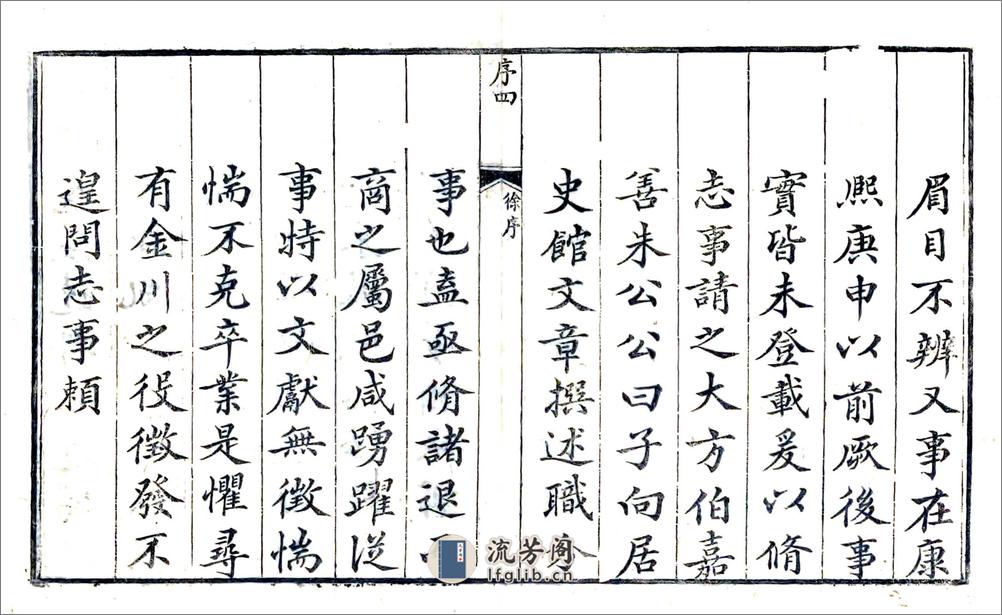 眉目不辨又事在康
熙庚申以前厥後事
實皆未登載爰以脩
志事請之大方伯嘉
善朱公公曰子向居
史館文章撰述職
序四
徐序
事也盍亟脩諸退而
商之屬邑咸踴躍從
事特以文獻無徵惴
惴不克卒業是懼尋
有金川之役徵發不
遑問志事賴
流芳阁
lfglib.cn